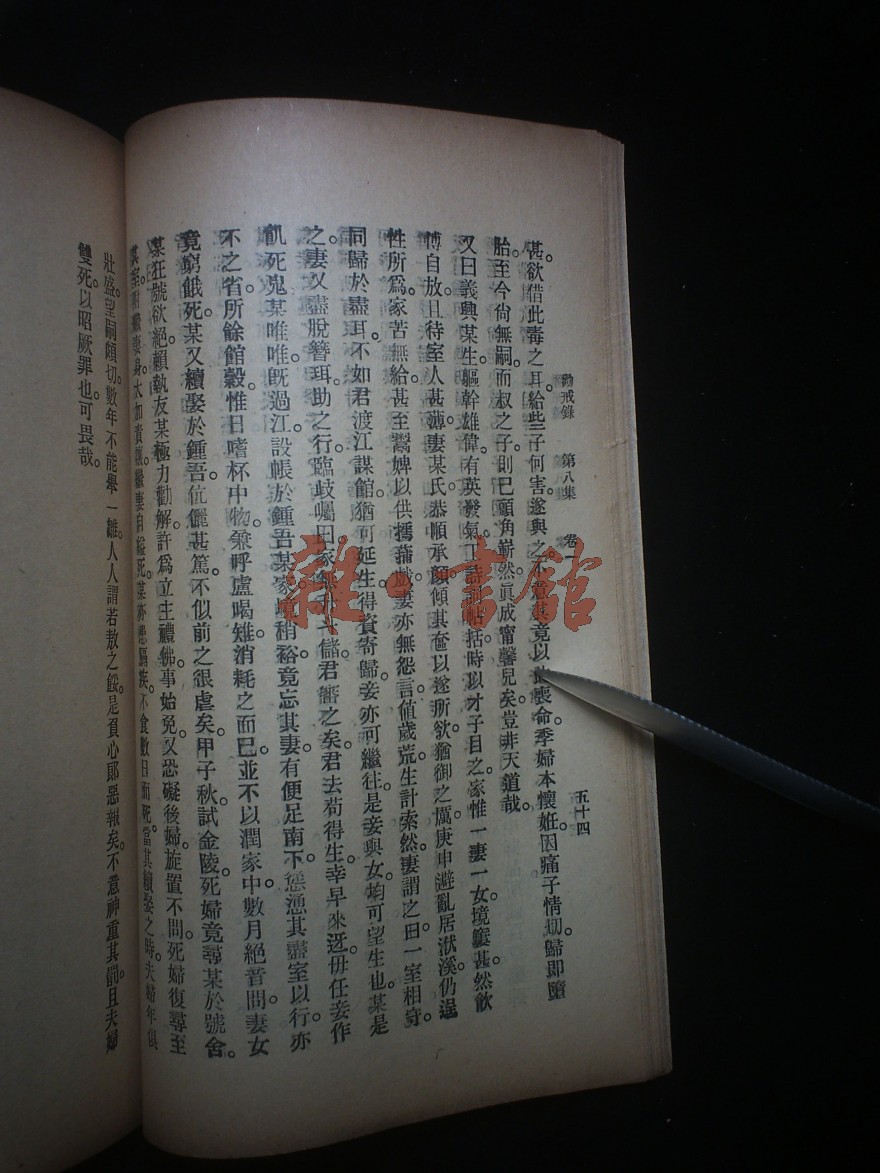 勸戒錄 第八集 卷一 五十四
甚欲借此毒之耳。給些子何害。遂與之。不意其竟以 喪命。季婦本懷姙。因痛子情切。歸卽墮
胎。至今尙無嗣。而叔之子。則已頭角嶄然。眞成甯馨兒矣。豈非天道哉。
又曰。義興某生。軀幹雄偉。有英發氣。工詩 帖括。時以才子目之。家惟一妻一女。境窶甚。然飲
博自放。且待室人甚薄。妻某氏。恭順承顏。傾其奩以遂所欲。猶御之厲。庚申避亂居洑溪。仍逞
性所爲。家苦無給。甚至鬻婢以供摴蒱戲。妻亦無怨言。値歲荒。生計索然。妻謂之曰。一室相守。
同歸於盡耳。不如君渡江謀館。猶可延生。得資寄歸。妾亦可繼往。是妾與女均可望生也。某是
之。妻又盡脫簪珥助之行。臨歧囑曰。家無 儲。君審之矣。君去。苟得生。幸早來迓。毋任妾作
飢死鬼。某唯唯。旣過江。設帳於鍾吾。某家境稍裕。竟忘其妻。有便足南下。慫慂其盡室以行。亦
不之省。所餘館穀。惟日嗜杯中物。兼呼盧喝雉。消耗之而已。並不以潤家中。數月絕音問。妻女
竟窮餓死。某又續娶於鍾吾。伉儷甚篤。不似前之很虐矣。甲子秋試金陵。死婦竟尋某於號舍。
某狂號欲絕。賴執友某極力勸解。許爲立主禮佛。事始免。又恐礙後婦。旋置不問。死婦復尋至
其室。附繼妻身。大加責讓。繼妻自縊死。某亦患膈疾。不食數日而死。當其續娶之時。夫婦年俱
壯盛。望嗣頗切。數年不能舉一雛。人人謂若敖之餒。是負心郞惡報矣。不意神重其罰。且夫婦
雙死。以昭厥罪也。可畏哉。
雜 書館